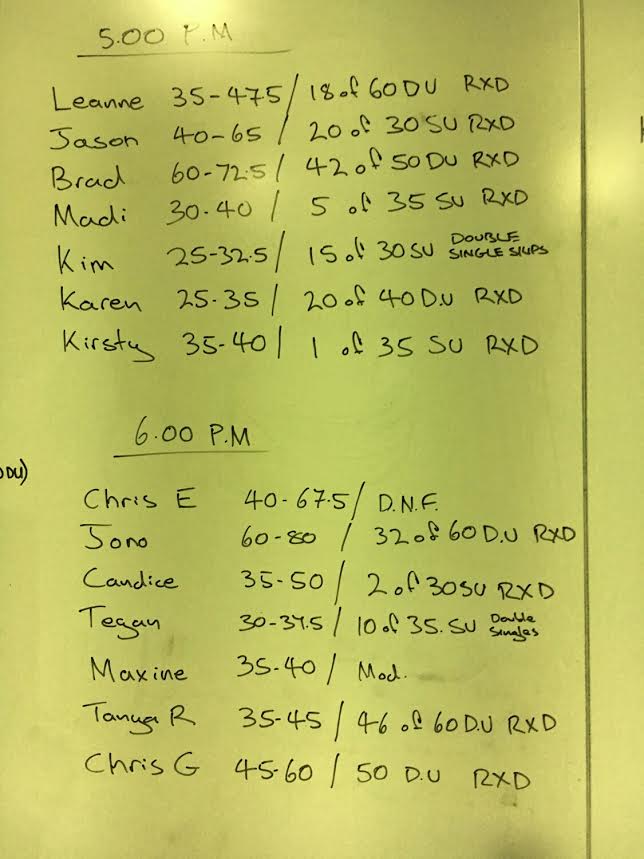 5.00 P.M
Leanne 35-47.5/ 18 of 60 DU RXD
Jason 40-65 / 20 of 30 SU RXD
Brad 60-72.5/ 42 of 50 DU RXD
Madi 30-40 / 5 of 35 SU RXD
Kim 25-32.5/ 15 of 30 SU DOUBLE
SINGLE SKIPS
Karen 25-35 / 20 of 40 D.U RXD
Kirsty 35-40 / 1 of 35 SU RXD
6.00 P.M
DU)
Chris E 40-67.5/ D.N.F.
Jono 60-80 / 32 of 60 D.U RXD
Candice 35-50 / 2 of 30 SU RXD
Tegan 30-37.5 / 10 of 35.SU Double
Singles
Maxine 35-40 / Mod.
Tanya R 35-45 / 46 of 60 D.U RXD
Chris G 45-60 / 50 D.U RXD